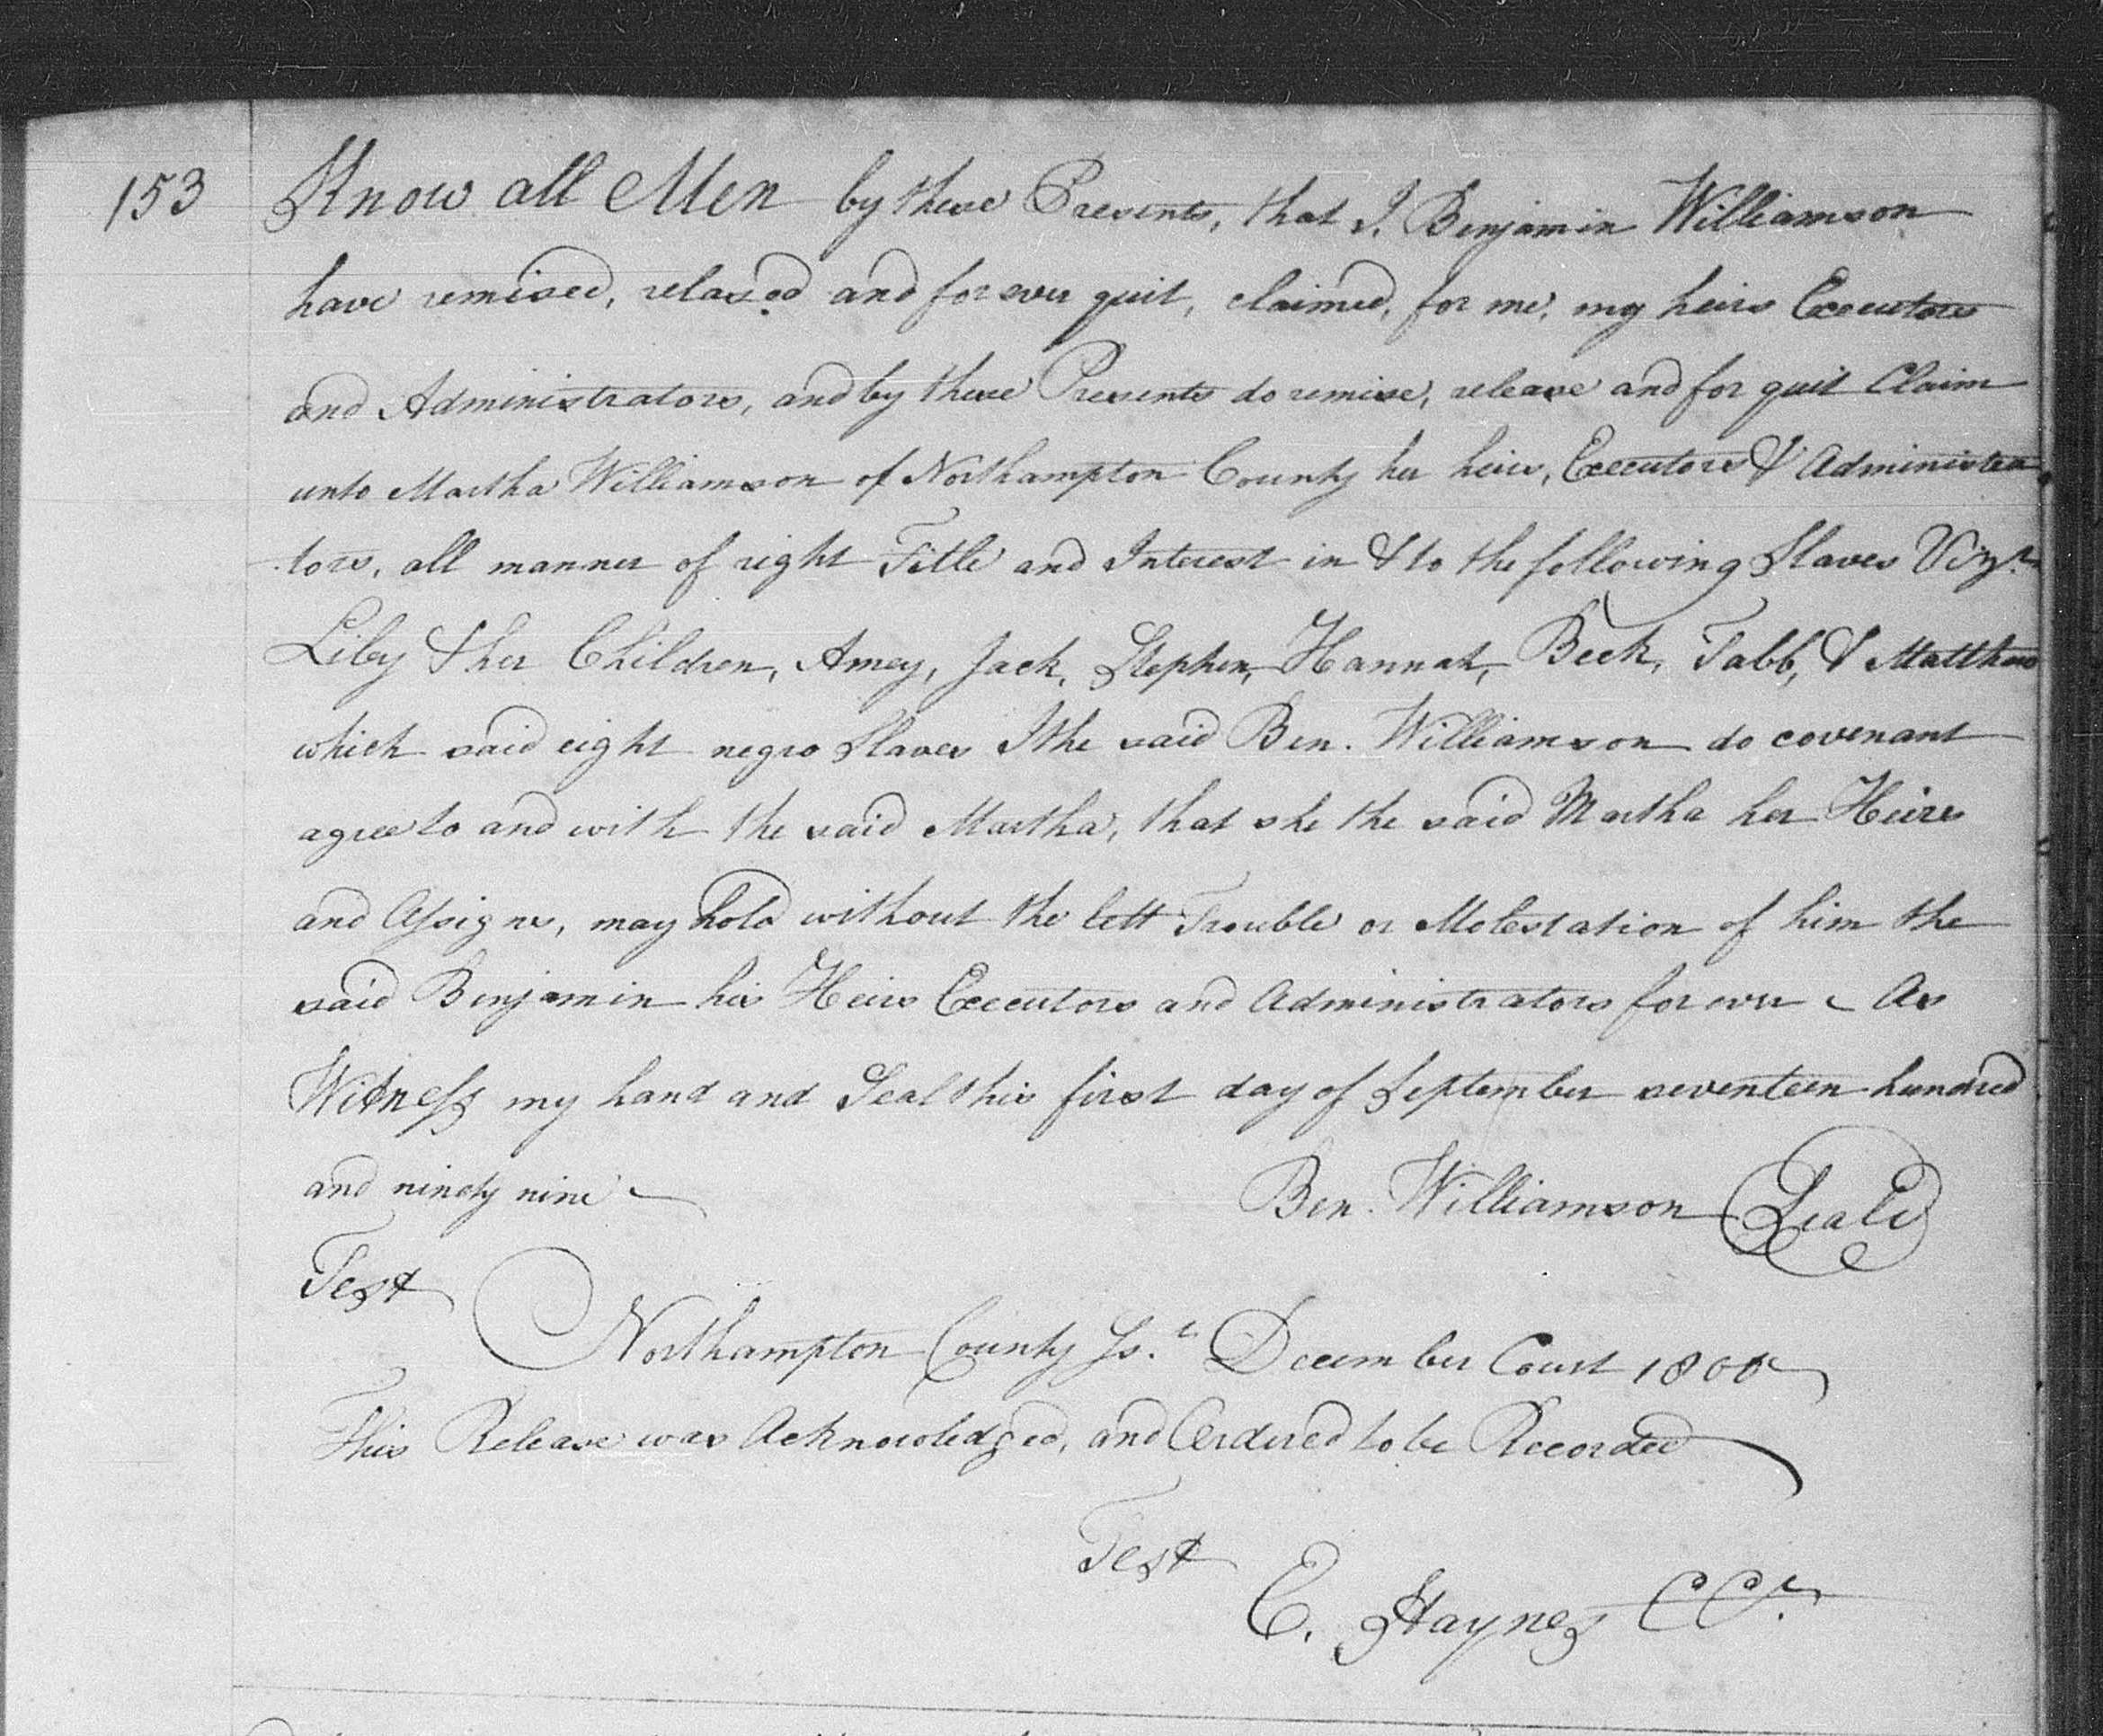 153 Know all Men by these Presents, that I, Benjamin Williamson
have remised, relased and for ever quit, claimed, for me, my heirs Executors
and Administrators, and by these Presents do remise, release and for quit Claim
unto Martha Williamson of Northampton County her heirs, Executors & Administra
tors, all manner of right Title and Interest in & to the following Slaves Vizt.
Liby & her Children, Amey, Jack, Stephen, Hannah, Beck, Tabb, & Matthew
which said eight negro Slaves I the said Ben. Williamson do covenant
agree to and with the said Martha, that she the said Martha her Heirs
and Assigns, may hold without the lett Trouble or Molestation of him the
said Benjamin his Heirs Executors and Administrators for ever As
Witness my hand and Seal this first day of September seventeen hundred
and ninety nine
Ben. Williamson Seal
Test
Northampton County Ss. December Court 1800
This Release was Acknowledged, and Ordered to be Recorded
Test
E. Haynes CC.